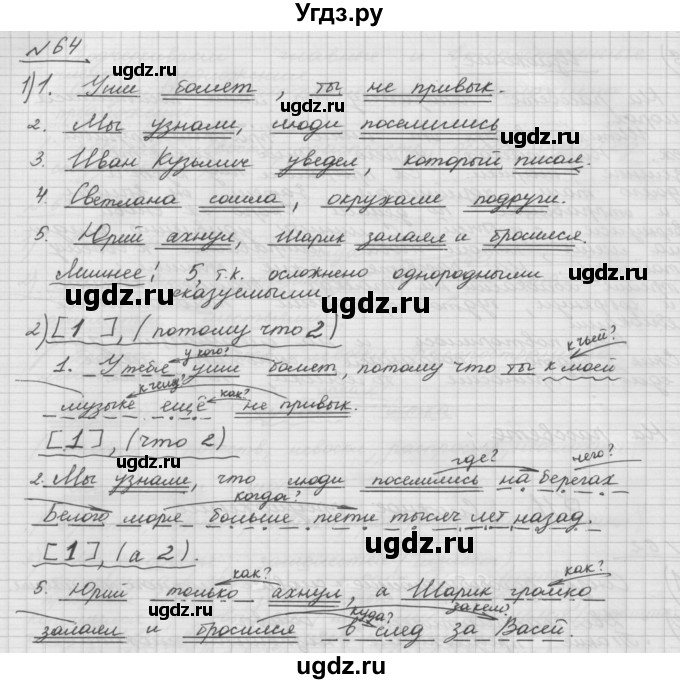 Угдз.ру
№64
1) 1. Уши болят, ты не привык.
2. Мы узнали, люди поселились
3. Иван Кузьмич уведел, который писал.
4. Светлана сошла, окружали подруги.
5. Юрий ахнул, Шарик залаял и бросился.
Лишнее! 5, т.к. осложнено однородными
сказуемыми
2) [1], (потому что 2)
у кого? к чьей?
1. У тебя уши болят, потому что ты к моей
к чему? как?
музыке ещё не привык.
[1], (что 2)
где? чего?
2. Мы узнали, что люди поселились на берегах
когда?
Белого моря больше пяти тысяч лет назад.
[1], (а 2).
как? как?
5. Юрий только ахнул, а Шарик громко
куда? за кем?
залаял и бросился в след за Васей.
ugdz.ru
ugdz.ru
ugdz.ru
ugdz.ru
ugdz.ru
ugdz.ru
ugdz.ru
ugdz.ru
ugdz.ru
ugdz.ru
ugdz.ru
ugdz.ru
ugdz.ru